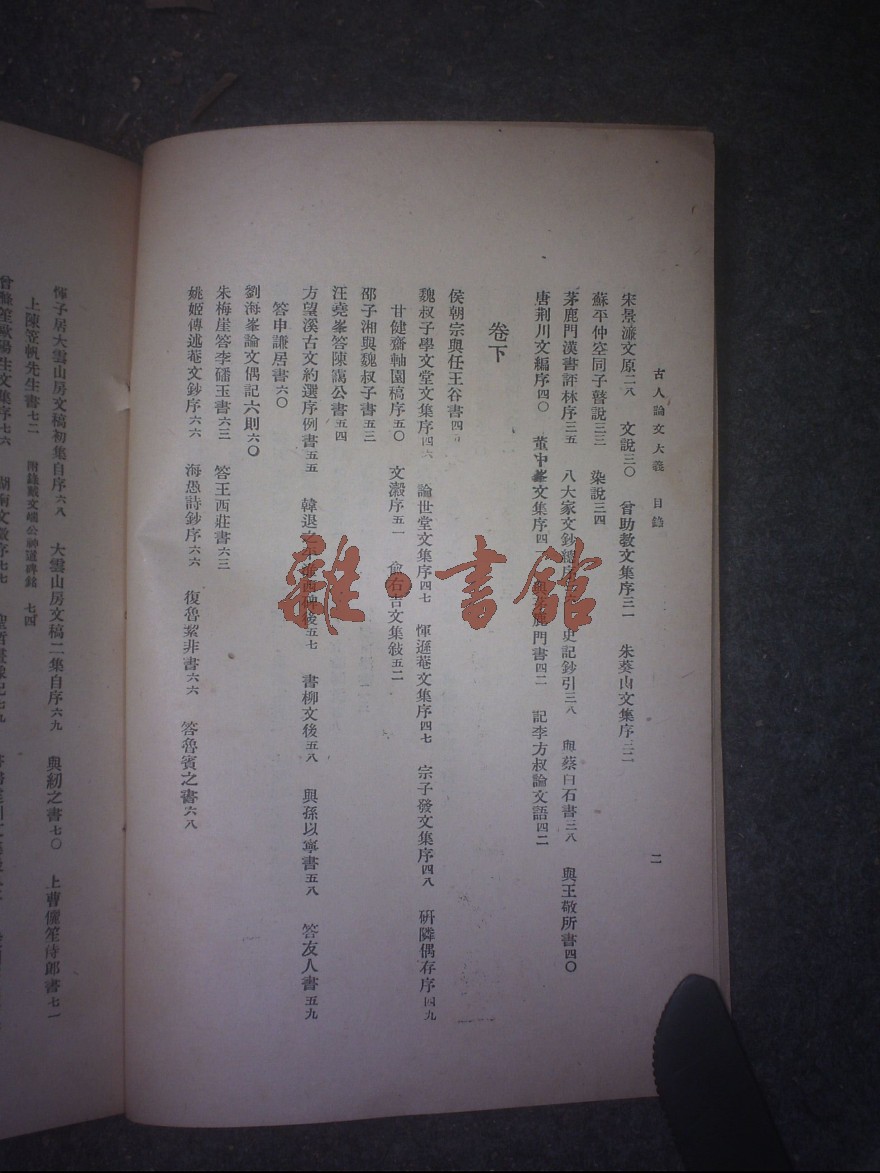 古人論文大義　目錄　二
宋景濂文原二八　文說三〇　曾助教文集序三一　朱葵山文集序三二
蘇平仲空同子瞽說三三　染說三四
茅鹿門漢書評林序三五　八大家文鈔總序　史記鈔引三八　與蔡白石書三八　與王敬所書四〇
唐荊川文編序四〇　董中峯文集序四　與茅鹿門書四二　記李方叔論文語四二
卷下
侯朝宗與任王谷書四
魏叔子學文堂文集序四六　論世堂文集序四七　惲遜菴文集序四七　宗子發文集序四八　研隣偶存序四九
甘健齋軸園稿序五〇　文瀔序五一　俞右吉文集敍五二
邵子湘與魏叔子書五三
汪堯峯答陳靄公書五四
方望溪古文約選序例書五五　韓退之平淮西碑後五七　書柳文後五八　與孫以寧書五八　答友人書五九
答申謙居書六〇
劉海峯論文偶記六則六〇
朱梅崖答李磻玉書六三　答王西莊書六三
姚姬傳述菴文鈔序六六　海愚詩鈔序六六　復魯絜非書六六　答魯賓之書六八
惲子居大雲山房文稿初集自序六八　大雲山房文稿二集自序六九　與紉之書七〇　上曹儷笙侍郎書七一
上陳笠帆先生書七二　附錄戴文端公神道碑銘七四
曾滌笙歐陽生文集序七六　湖南文徵序七七　聖哲畫像記七九
雜·書館